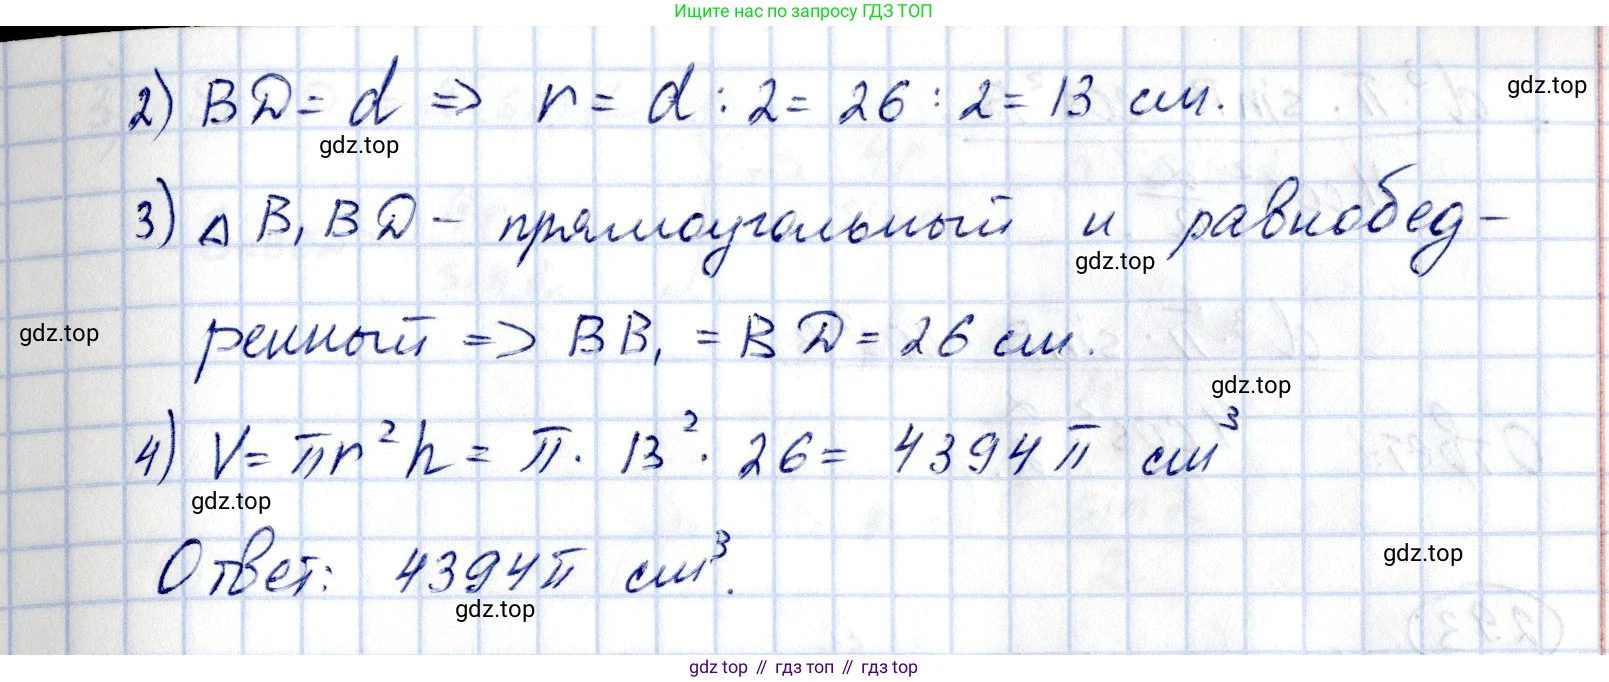 Ищите нас по запросу ГДЗ ТОП
2) BD = d => r = d : 2 = 26 : 2 = 13 см.
gdz.top
gdz.top
3) △ B₁BD - прямоугольный и равнобед-
gdz.top
gdz.top
ренный => BB₁ = BD = 26 см.
gdz.top
4) V = πr²h = π · 13² · 26 = 4394π см³
gdz.top
Ответ: 4394π см³.
gdz.top
gdz.top
gdz top // гдз топ // гдз top